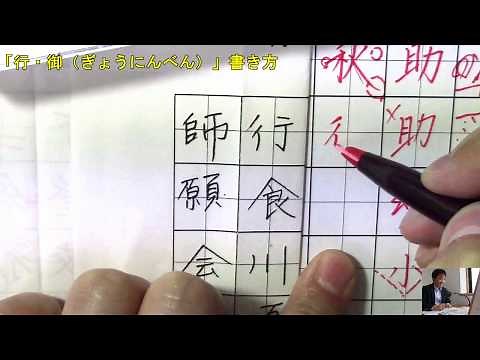 「行・御（ぎょうにんべん）」書き方
助助小
秋彳
行食川
師願会